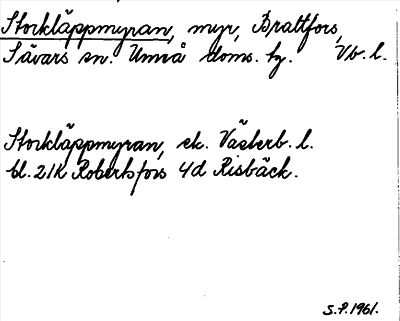 Storkläppmyran, myr, Brattfors,
Sävars sn. Umeå doms. tg. Vb. l.
Storkläppmyran, ek. Västerb. l.
bl. 21K Robertsfors 4d Risbäck.
S.P. 1961.